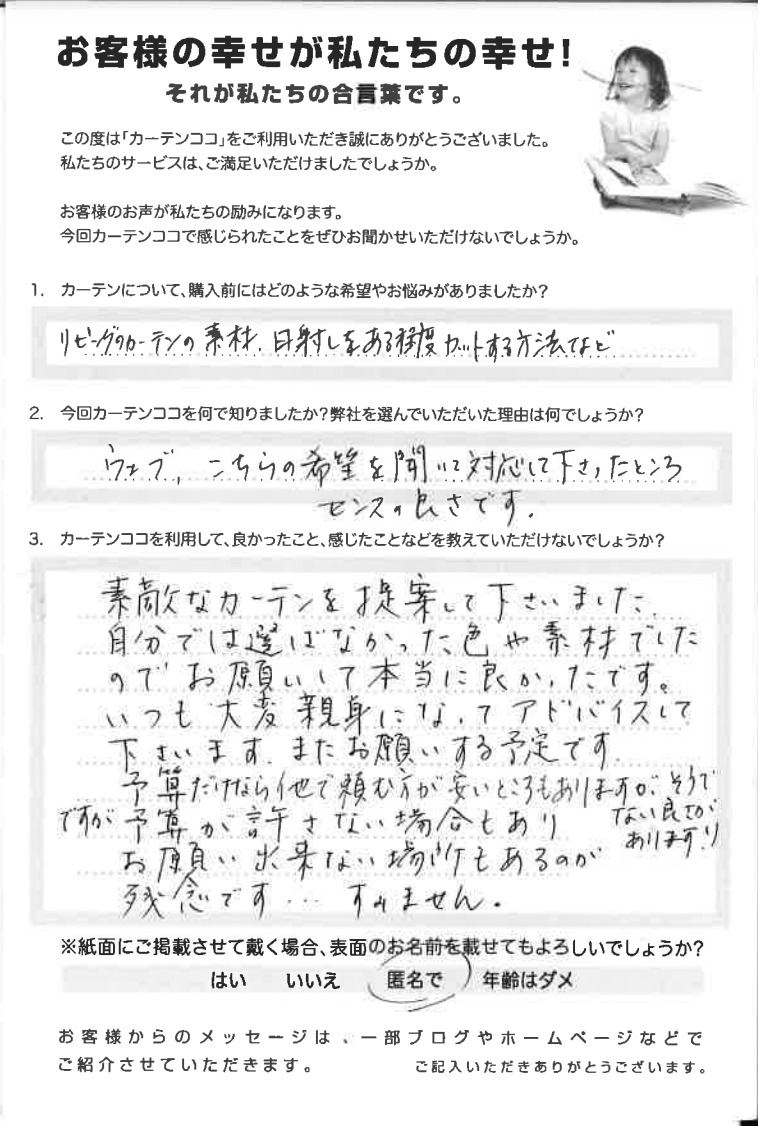 お客様の幸せが私たちの幸せ!
それが私たちの合言葉です。
この度は「カーテンココ」をご利用いただき誠にありがとうございました。
私たちのサービスは、ご満足いただけましたでしょうか。
お客様のお声が私たちの励みになります。
今回カーテンココで感じられたことをぜひお聞かせいただけないでしょうか。
1. カーテンについて、購入前にはどのような希望やお悩みがありましたか?
リビングのカーテンの素材、日射しをある程度カットする方法など
2. 今回カーテンココを何で知りましたか?弊社を選んでいただいた理由は何でしょうか?
ウェブ, こちらの希望を聞いて対応して下さったところ
センスの良さです.
3. カーテンココを利用して、良かったこと、感じたことなどを教えていただけないでしょうか?
素敵なカーテンを提案して下さいました.
自分では選ばなかった色や素材でした
のでお願いして本当に良かったです。
いつも大変親身になってアドバイスして
下さいます. またお願いする予定です.
予算だけなら他で頼む方が安いところもありますが、そうで
ない良さが
あります!!
ですが予算が許さない場合もあり
お願い出来ない場所もあるのが
残念です... すみません。
※紙面にご掲載させて戴く場合、表面のお名前を載せてもよろしいでしょうか?
はい いいえ 匿名で 年齢はダメ
お客様からのメッセージは、一部ブログやホームページなどで
ご紹介させていただきます。 ご記入いただきありがとうございます。